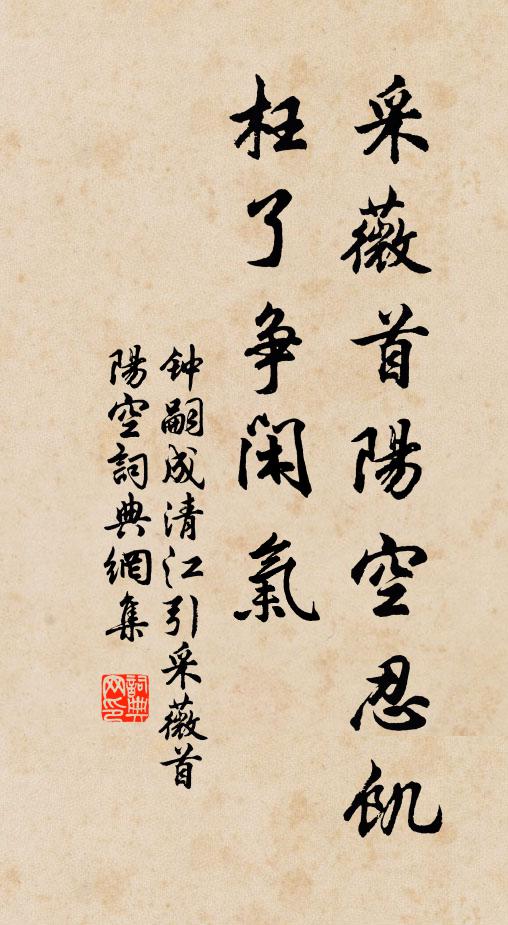 采薇首陽空忍飢
枉了爭閑氣
钟嗣成清江引采薇首
陽空詞典網集
詞典
网印